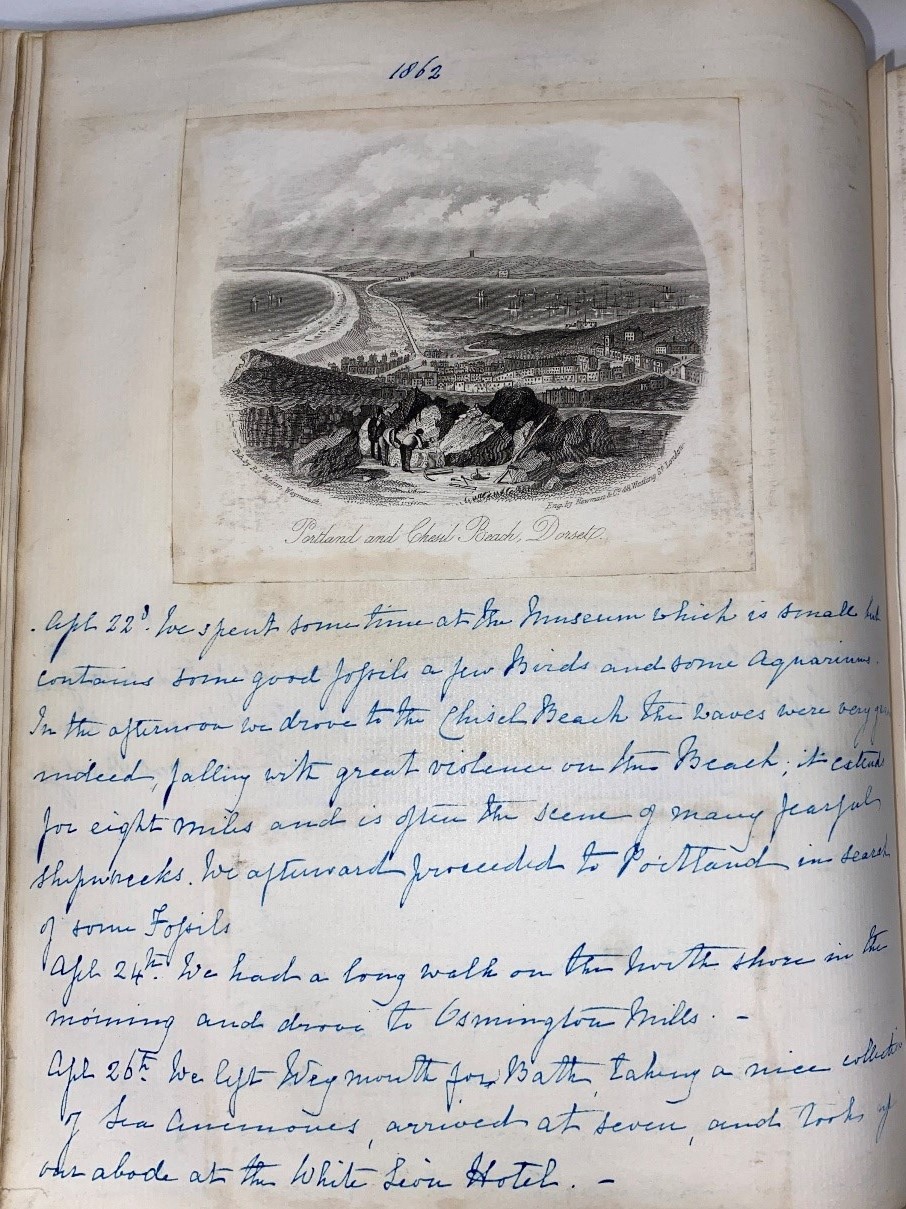 1862
Pub. by R. J. Weymouth
Eng. by Newman & Co. 48 Watling St. London
Portland and Chesil Beach, Dorset.
. Apl. 22d. We spent some time at the Museum which is small but
contains some good fossils a few Birds and some Aquariums.
In the afternoon we drove to the Chisel Beach the waves were very
indeed, falling with great violence on this Beach; it extends
for eight miles and is often the scene of many fearful
shipwrecks. We afterward proceeded to Portland in search
of some Fossils
Apl. 24th. We had a long walk on the North shore in the
morning and drove to Osmington Mills. -
Apl. 26th. We left Weymouth for Bath, taking a nice collection
of Sea Anemones, arrived at seven, and took up
our abode at the White Lion Hotel. -